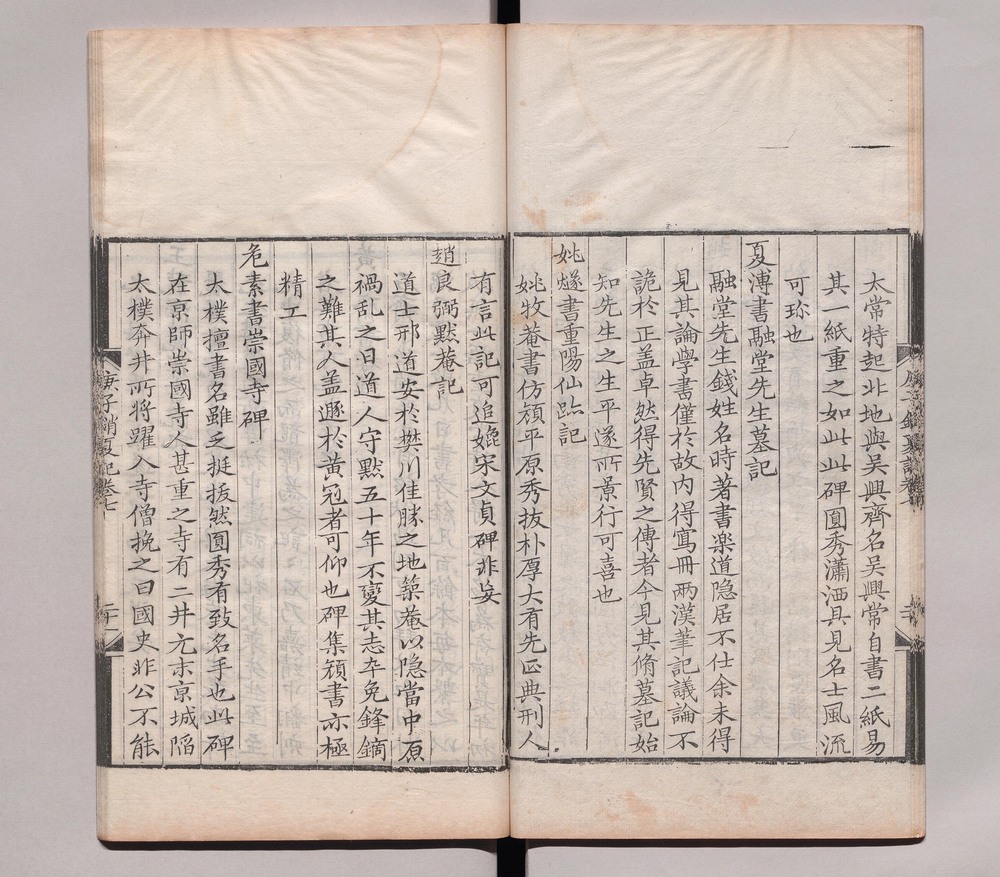 太常特起北地與吴興齊名吴興常自書二紙易
其一紙重之如此此碑圓秀瀟洒具見名士風流
可珎也
夏溥書融堂先生墓記
融堂先生錢姓名時著書楽道隐居不仕余未得
見其論學書僅於故内得寫冊兩漢筆記議論不
詭於正盖卓然得先賢之傳者今見其脩墓記始
知先生之生平遂所景行可喜也
姚燧書重陽仙跡記
姚牧菴書仿顔平原秀抜朴厚大有先正典刑人
有言此記可追媲宋文貞碑非妄
趙良弼默菴記
道士邢道安於樊川佳勝之地築菴以隐當中原
禍乱之日道人守默五十年不變其志卒免鋒鏑
之難其人盖遯於黃冠者可仰也碑集顔書亦極
精工
危素書崇國寺碑
太樸擅書名雖乏挺拔然圓秀有致名手也此碑
在京師崇國寺人甚重之寺有二井元末京城陷
太樸奔井所將躍入寺僧挽之曰國史非公不能
庚子銷夏記卷七